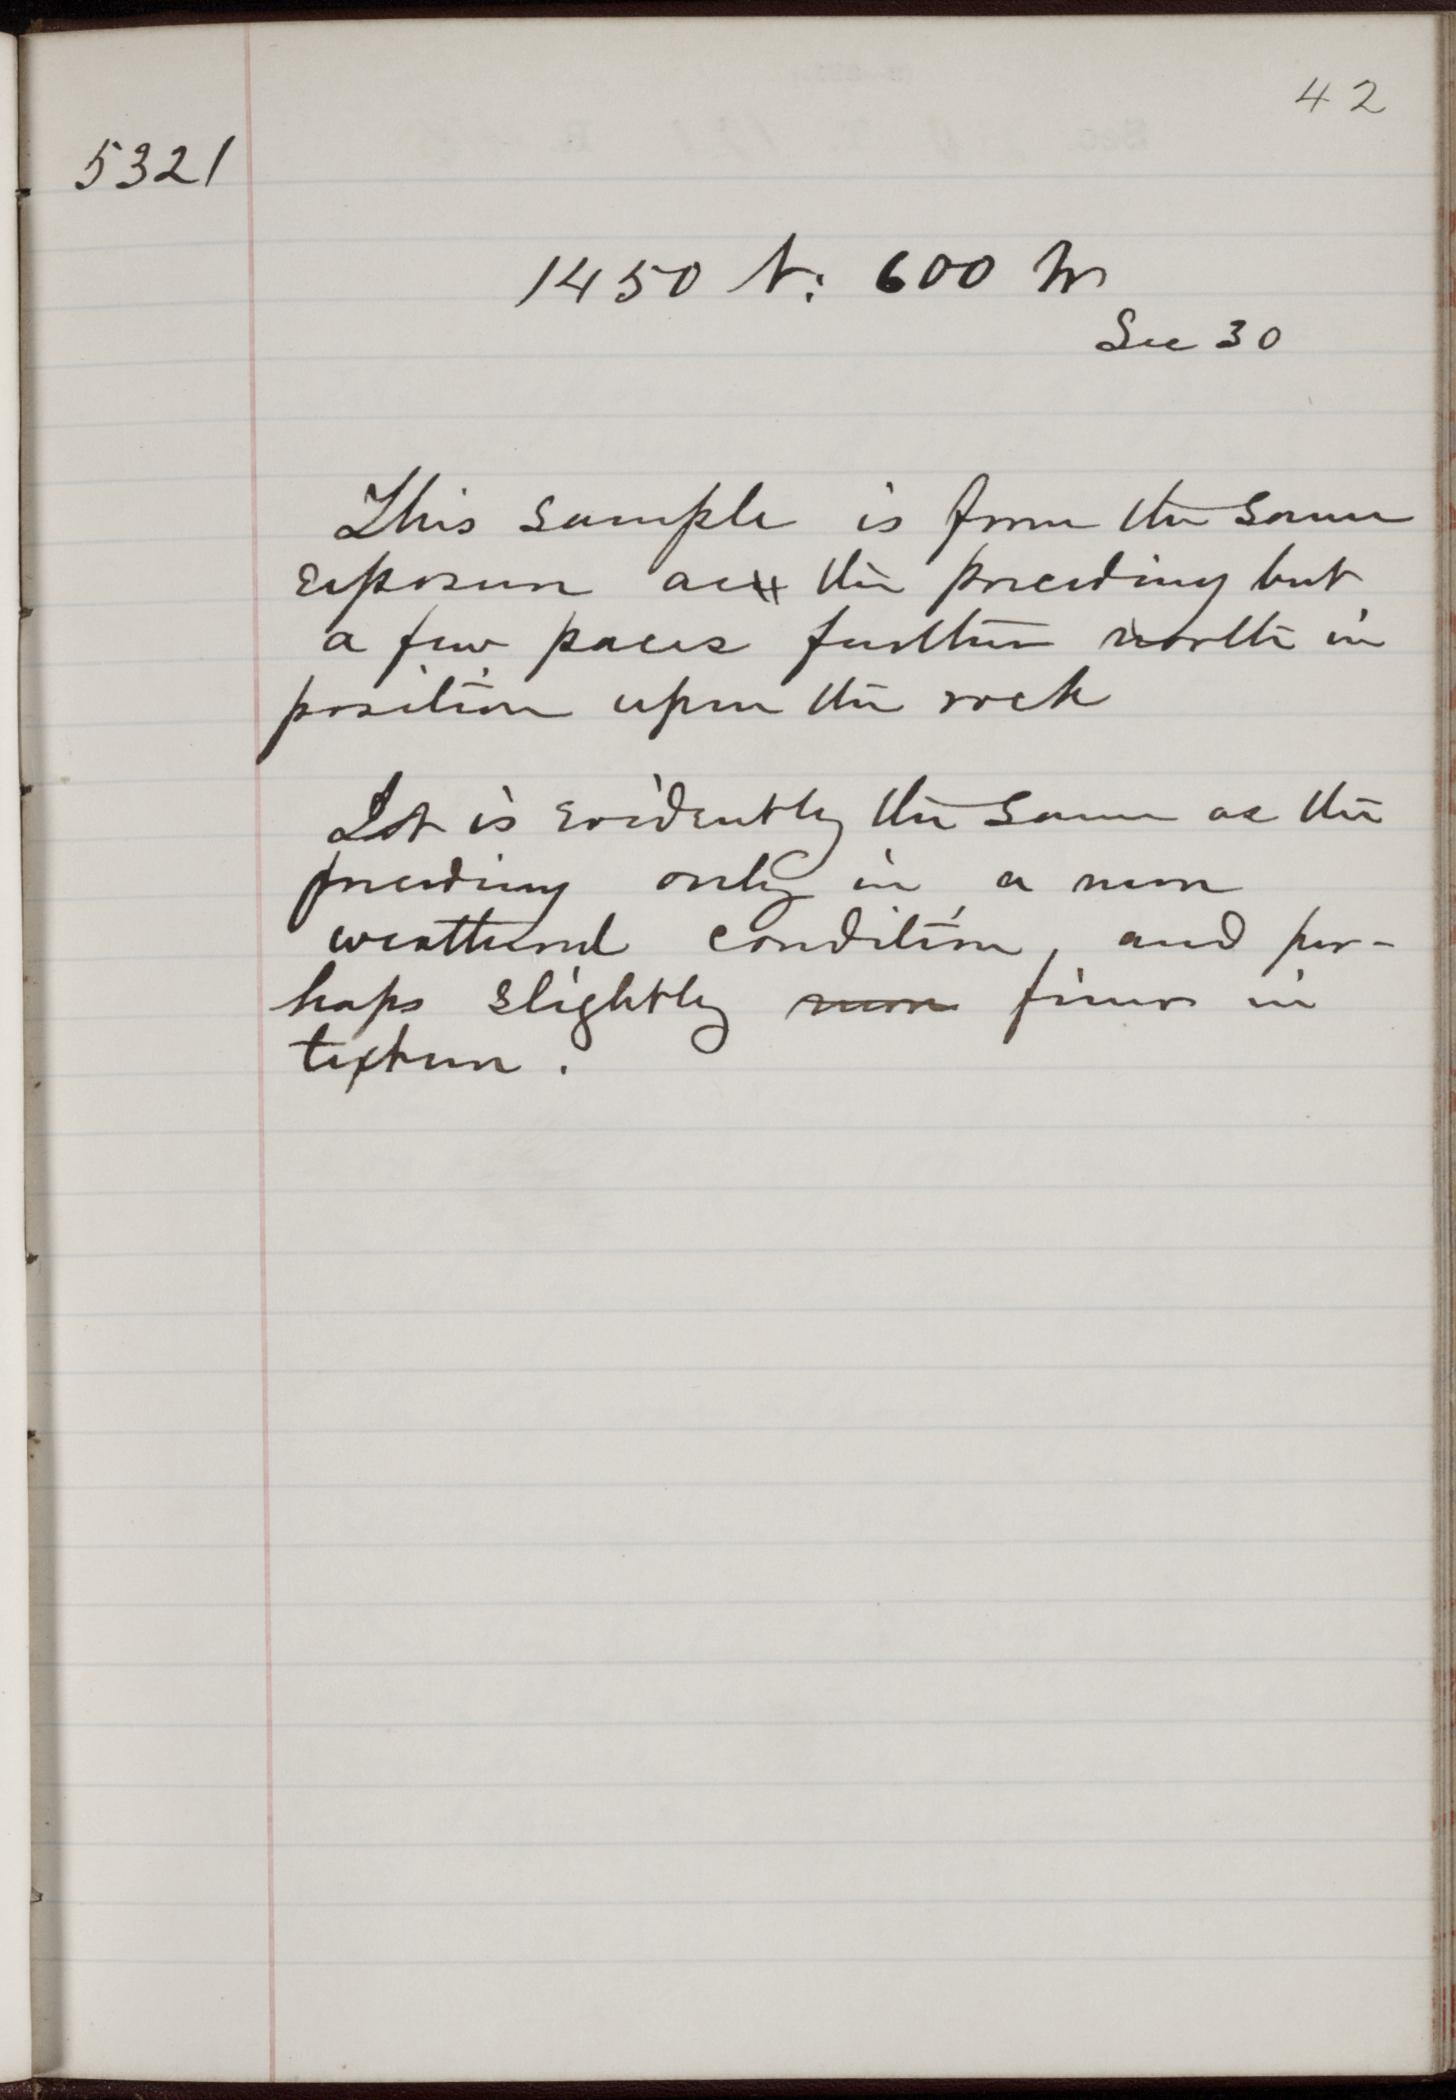 42
5321
1450 N: 600 W
Sec 30
This sample is from the same
exposure as the preceding but
a few paces further north in
position upon the rock
It is evidently the same as the
preceding only in a more
weathered condition, and per-
haps slightly more finer in
texture.